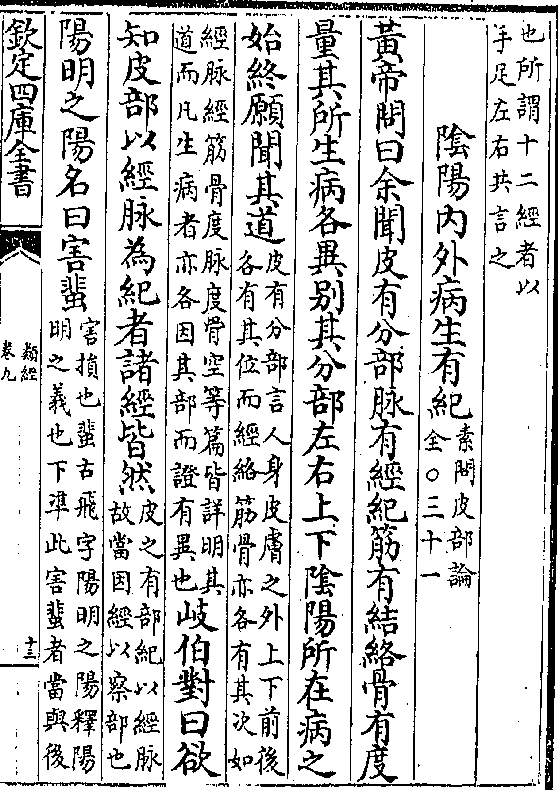 也所謂十二經者以
手足左右共言之
陰陽內外病生有紀
素問皮部論
全○三十一
黃帝問曰余聞皮有分部脉有經紀筋有結絡骨有度
量其所生病各異別其分部左右上下陰陽所在病之
始終願聞其道
皮有分部言人身皮膚之外上下前後
各有其位而經絡筋骨亦各有其次如
經脉經筋骨度脉度骨空等篇皆詳明其
道而凡生病者亦各因其部而證有異也
岐伯對曰欲
知皮部以經脉為紀者諸經皆然
皮之有部紀以經脉
故當因經以察部也
陽明之陽名曰害蜚
害損也蜚古飛字陽明之陽釋陽
明之義也下凖此害蜚者當與後
欽定四庫全書
類經
卷九
十三